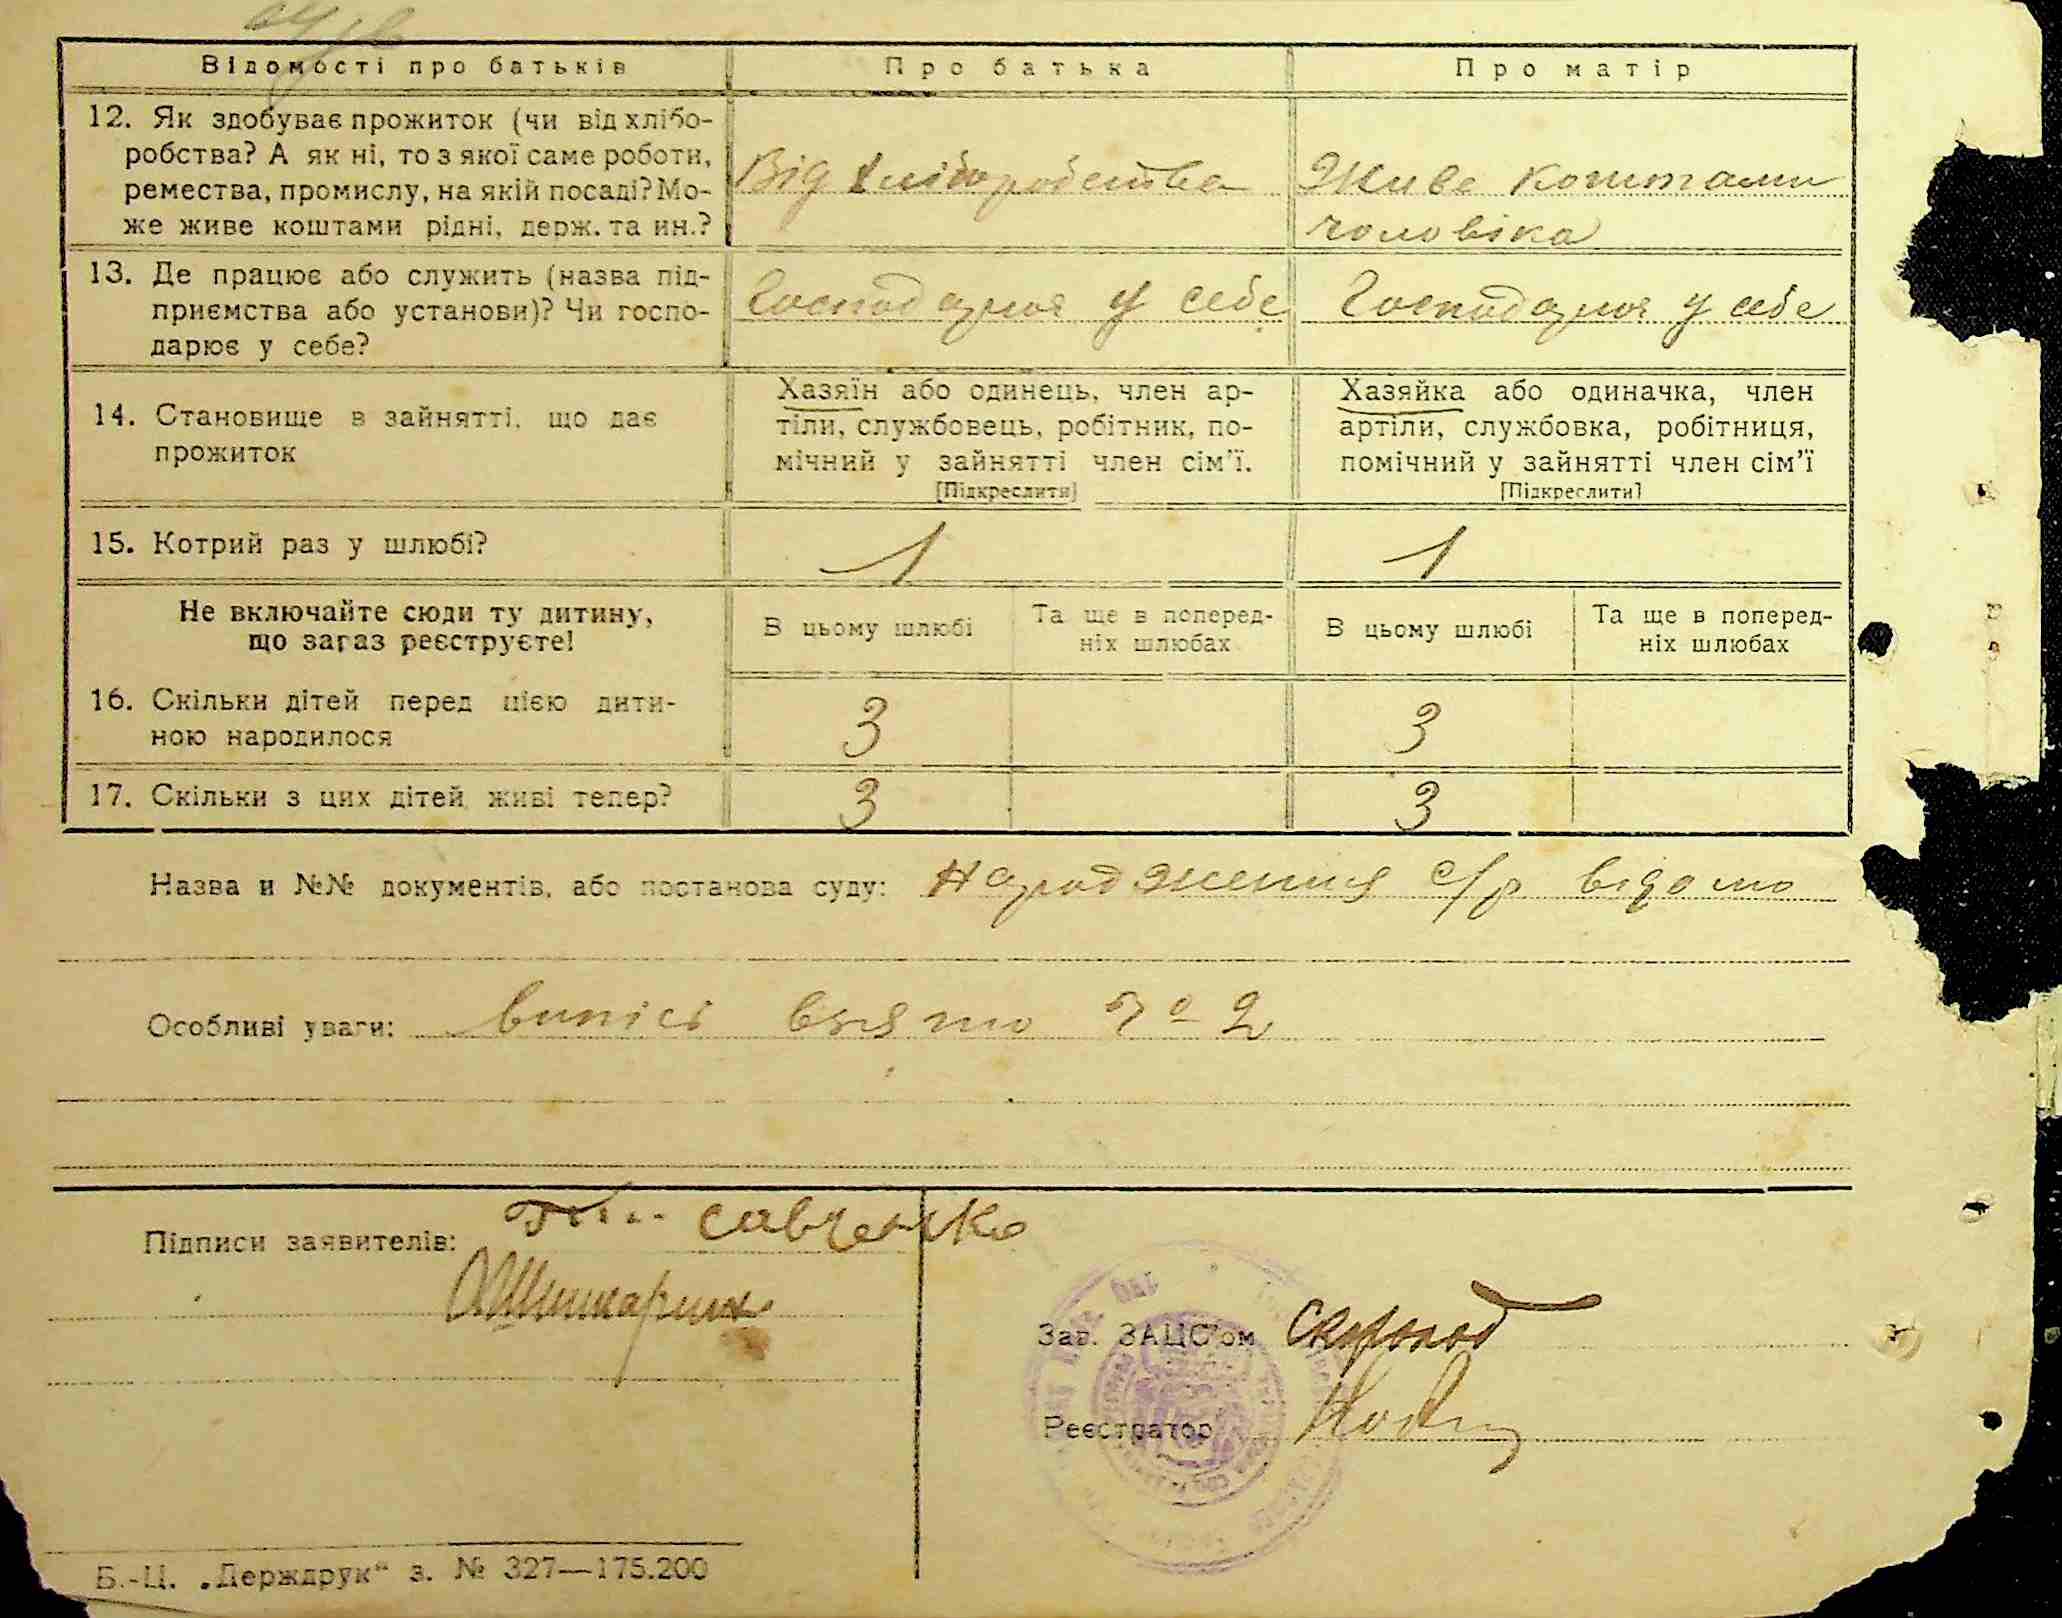 Відомості про батьків
Про батька
Про матір
12. Як здобуває прожиток (чи від хлібо-
робства? А як ні, то з якої саме роботи,
ремества, промислу, на якій посаді? Мо-
же живе коштами рідні, держ. та ин.?
Від хліборобства
Живе коштами
чоловіка
13. Де працює або служить (назва під-
приємства або установи)? Чи госпо-
дарює у себе?
Господарює у себе
Господарює у себе
14. Становище в зайнятті, що дає
прожиток
Хазяїн або одинець, член ар-
тіли, службовець, робітник, по-
мічний у зайнятті член сім'ї.
[Підкреслити]
Хазяйка або одиначка, член
артіли, службовка, робітниця,
помічний у зайнятті член сім'ї
[Підкреслити]
15. Котрий раз у шлюбі?
1
1
Не включайте сюди ту дитину,
що зараз реєструєте!
В цьому шлюбі
Та ще в поперед-
ніх шлюбах
В цьому шлюбі
Та ще в поперед-
ніх шлюбах
16. Скільки дітей перед цією дити-
ною народилося
3
3
17. Скільки з цих дітей живі тепер?
3
3
Назва и №№ документів, або постанова суду: Народження с/р відомо
Особливі уваги: випісі взято 2
Підписи заявителів: Савченко
Зав. ЗАЦС'ом
Реєстратор
Б.-Ц. „Держдрук“ з. № 327—175.200